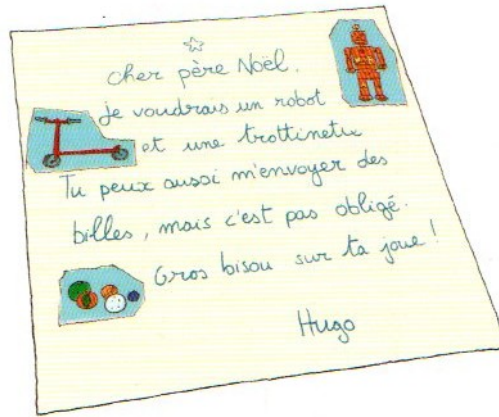 cher père Noël.
je voudrais un robot
et une trottinette
Tu peux aussi m'envoyer des
billes, mais c'est pas obligé.
Gros bisou sur ta joue !
Hugo